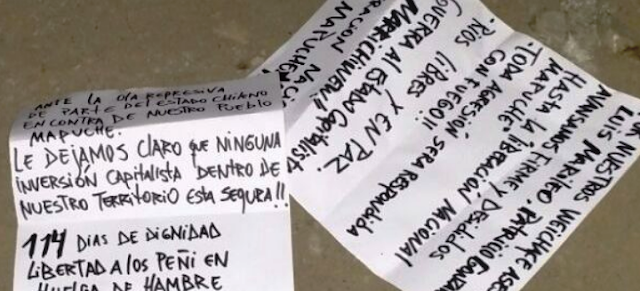 ANTE LA OLA REPRESIVA
DE PARTE DEL ESTADO CHILENO
EN CONTRA DE NUESTRO PUEBLO
MAPUCHE.
LE DEJAMOS CLARO QUE NINGUNA
INVERSIÓN CAPITALISTA DENTRO DE
NUESTRO TERRITORIO ESTA SEGURA!!
114 DIAS DE DIGNIDAD
LIBERTAD A LOS PEÑI EN
HUELGA DE HAMBRE
A NUESTROS WEICHAFE
LUIS MARILEO, PATRICIO
AVANSAMOS FIRME Y DESIDIDOS
HASTA LA LIBERACION NACIONAL
MAPUCHE
TODA AGRESIÓN SERA RESPONDIDA
CON FUEGO!!
RIOS LIBRES Y EN PAZ.
GUERRA AL ESTADO CAPITALISTA
MARRICHIWEW!!
MAPUCHE